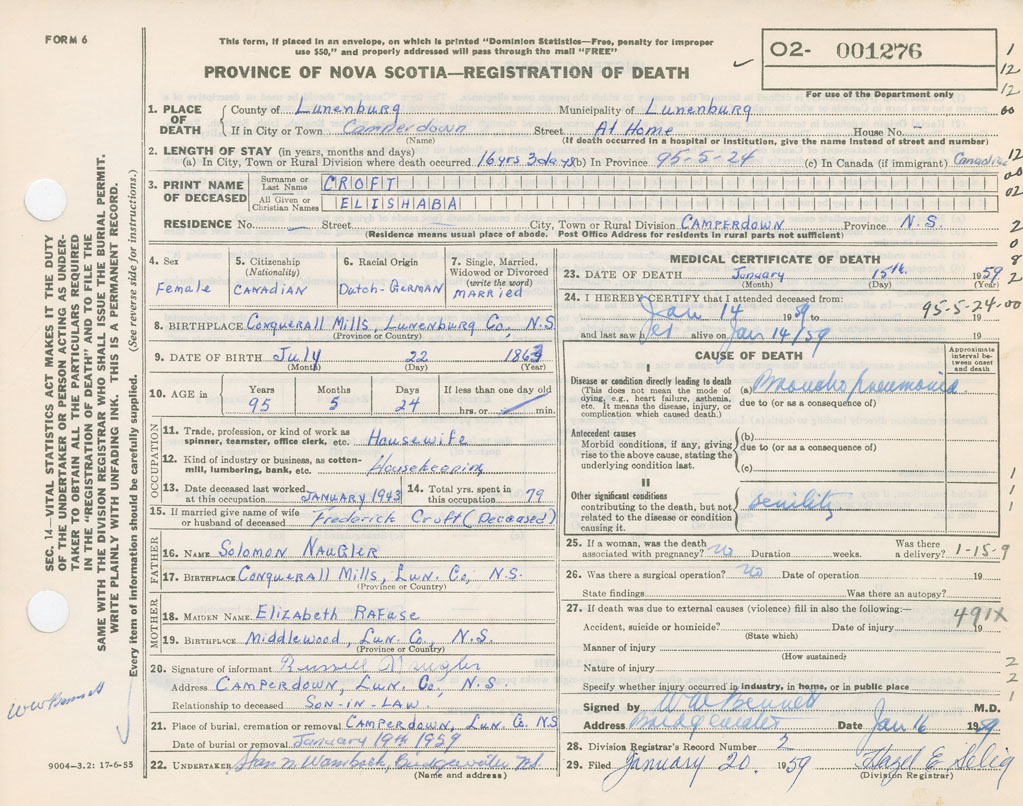 FORM 6
This form, if placed in an envelope, on which is printed "Dominion Statistics—Free, penalty for improper
use $50," and properly addressed will pass through the mail "FREE"
PROVINCE OF NOVA SCOTIA—REGISTRATION OF DEATH
02- 001276
For use of the Department only
1. PLACE OF DEATH
County of Lunenburg Municipality of Lunenburg
If in City or Town Camperdown Street At Home House No. –
(Name) (If death occurred in a hospital or institution, give the name instead of street and number)
2. LENGTH OF STAY (in years, months and days)
(a) In City, Town or Rural Division where death occurred 16 yrs 3 days (b) In Province 95-5-24 (c) In Canada (if immigrant) Canadian
3. PRINT NAME OF DECEASED
Surname or Last Name CROFT
All Given or Christian Names ELISHABA
RESIDENCE No. Street City, Town or Rural Division CAMPERDOWN Province N.S.
(Residence means usual place of abode. Post Office Address for residents in rural parts not sufficient)
4. Sex Female
5. Citizenship (Nationality) CANADIAN
6. Racial Origin Dutch-GERMAN
7. Single, Married, Widowed or Divorced (write the word) MARRIED
8. BIRTHPLACE Conquerall Mills, Lunenburg Co., N.S.
(Province or Country)
9. DATE OF BIRTH July 22 1863
(Month) (Day) (Year)
10. AGE in Years 95 Months 5 Days 24 If less than one day old hrs. or min.
OCCUPATION
11. Trade, profession, or kind of work as spinner, teamster, office clerk, etc. Housewife
12. Kind of industry or business, as cotton-mill, lumbering, bank, etc. Housekeeping
13. Date deceased last worked at this occupation JANUARY 1943 14. Total yrs. spent in this occupation 79
15. If married give name of wife or husband of deceased Frederick Croft (Deceased)
FATHER
16. NAME Solomon NAUGLER
17. BIRTHPLACE Conquerall Mills, Lun. Co., N.S.
(Province or Country)
MOTHER
18. MAIDEN NAME Elizabeth RAFUSE
19. BIRTHPLACE Middlewood, Lun. Co., N.S.
(Province or Country)
20. Signature of informant Russell Naugler
Address CAMPERDOWN, Lun. Co., N.S.
Relationship to deceased SON-IN-LAW
21. Place of burial, cremation or removal CAMPERDOWN, Lun. Co. N.S
Date of burial or removal January 19th 1959
22. UNDERTAKER Bridgewater
(Name and address)
MEDICAL CERTIFICATE OF DEATH
23. DATE OF DEATH January 15th 1959
(Month) (Day) (Year)
24. I HEREBY CERTIFY that I attended deceased from:
Jan 14 1959 to 19
and last saw her alive on Jan 14/59 19
95-5-24-00
CAUSE OF DEATH
Approximate interval between onset and death
I
Disease or condition directly leading to death
(This does not mean the mode of dying, e.g., heart failure, asthenia, etc. It means the disease, injury, or complication which caused death.)
(a) Broncho Pneumonia
due to (or as a consequence of)
Antecedent causes
Morbid conditions, if any, giving rise to the above cause, stating the underlying condition last.
(b)
due to (or as a consequence of)
(c)
II
Other significant conditions
contributing to the death, but not related to the disease or condition causing it.
Senility
25. If a woman, was the death associated with pregnancy? no Duration weeks. Was there a delivery? 1-15-9
26. Was there a surgical operation? no Date of operation 19
State findings Was there an autopsy?
27. If death was due to external causes (violence) fill in also the following:—
491X
Accident, suicide or homicide? Date of injury 19
(State which)
Manner of injury
(How sustained)
Nature of injury
Specify whether injury occurred in industry, in home, or in public place
Signed by W W Bennett M.D.
Address Bridgewater Date Jan 16 1959
28. Division Registrar's Record Number 2
29. Filed January 20. 1959 Hazel E Selig
(Division Registrar)
SEC. 14—VITAL STATISTICS ACT MAKES IT THE DUTY
OF THE UNDERTAKER OR PERSON ACTING AS UNDER-
TAKER TO OBTAIN ALL THE PARTICULARS REQUIRED
IN THE "REGISTRATION OF DEATH" AND TO FILE THE
SAME WITH THE DIVISION REGISTRAR WHO SHALL ISSUE THE BURIAL PERMIT.
WRITE PLAINLY WITH UNFADING INK. THIS IS A PERMANENT RECORD.
Every item of information should be carefully supplied. (See reverse side for instructions.)
WW Bennett
9004—3.2: 17-6-55
1
12
12
00
12
00
02
2
0
8
2
1
1
1
2
2
1